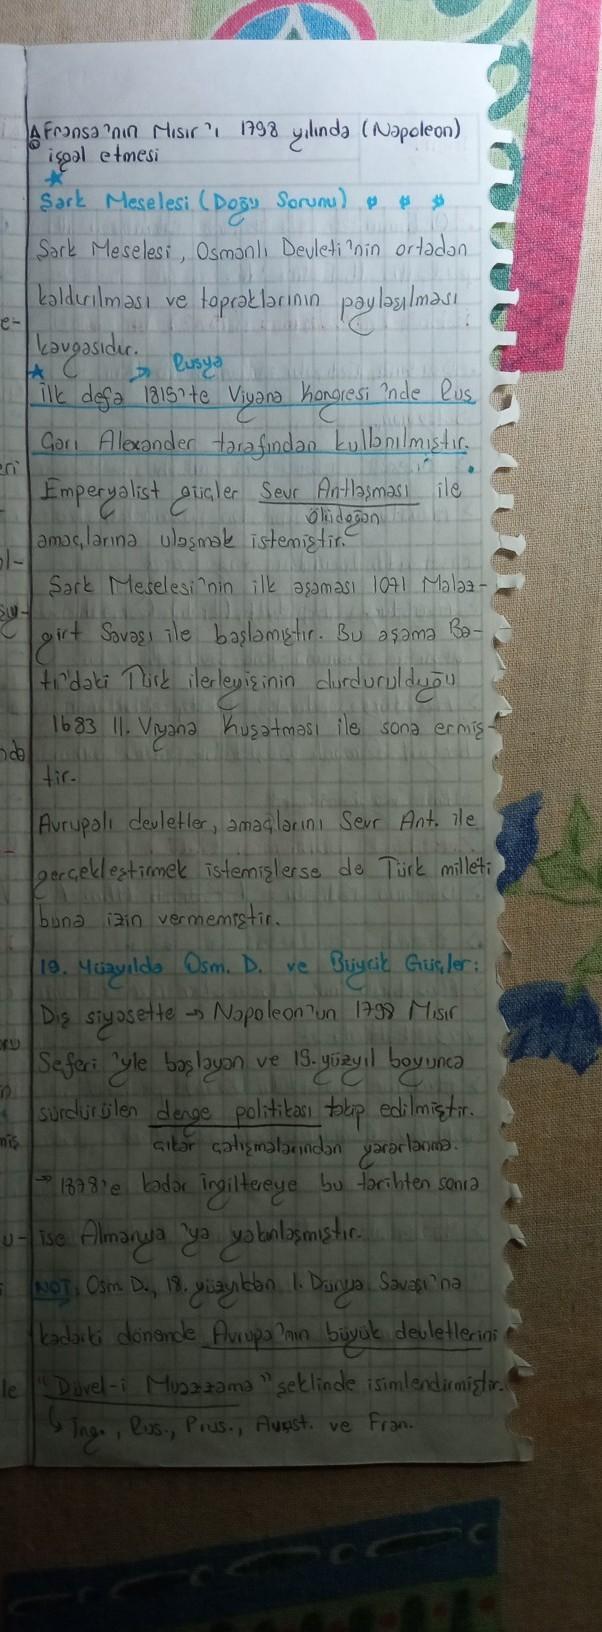 Fransa'nın Mısır'ı 1798 yılında (Napoleon)
işgal etmesi
Şark Meselesi (Doğu Sorunu)
Şark Meselesi, Osmanlı Devleti'nin ortadan
kaldırılması ve topraklarının paylaşılması
e-
kavgasıdır.
→ Rusya
ilk defa 1815'te Viyana Kongresi'nde Rus
Çarı Alexander tarafından kullanılmıştır.
eri
Emperyalist güçler Sevr Antlaşması ile
ölü doğan
amaçlarına ulaşmak istemiştir.
Şark Meselesi'nin ilk aşaması 1071 Malaz-
girt Savaşı ile başlamıştır. Bu aşama Ba-
tı'daki Türk ilerleyişinin durdurulduğu
1683 II. Viyana Kuşatması ile sona ermiş-
tir.
Avrupalı devletler, amaçlarını Sevr Ant. ile
gerçekleştirmek istemişlerse de Türk milleti
buna izin vermemiştir.
19. Yüzyılda Osm. D. ve Büyük Güçler:
Dış siyasette → Napoleon'un 1798 Mısır
Seferi'yle başlayan ve 19. yüzyıl boyunca
sürdürülen denge politikası takip edilmiştir.
çıkar çatışmalarından yararlanma.
→ 1878'e kadar İngiltereye bu tarihten sonra
ise Almanya'ya yakınlaşmıştır.
NOT: Osm D., 18. yüzyıldan 1. Dünya Savaşı'na
kadarki dönemde Avrupa'nın büyük devletlerini
le
"Düvel-i Muazzama" şeklinde isimlendirmiştir.
↳ İng., Rus., Prus., Avust. ve Fran.